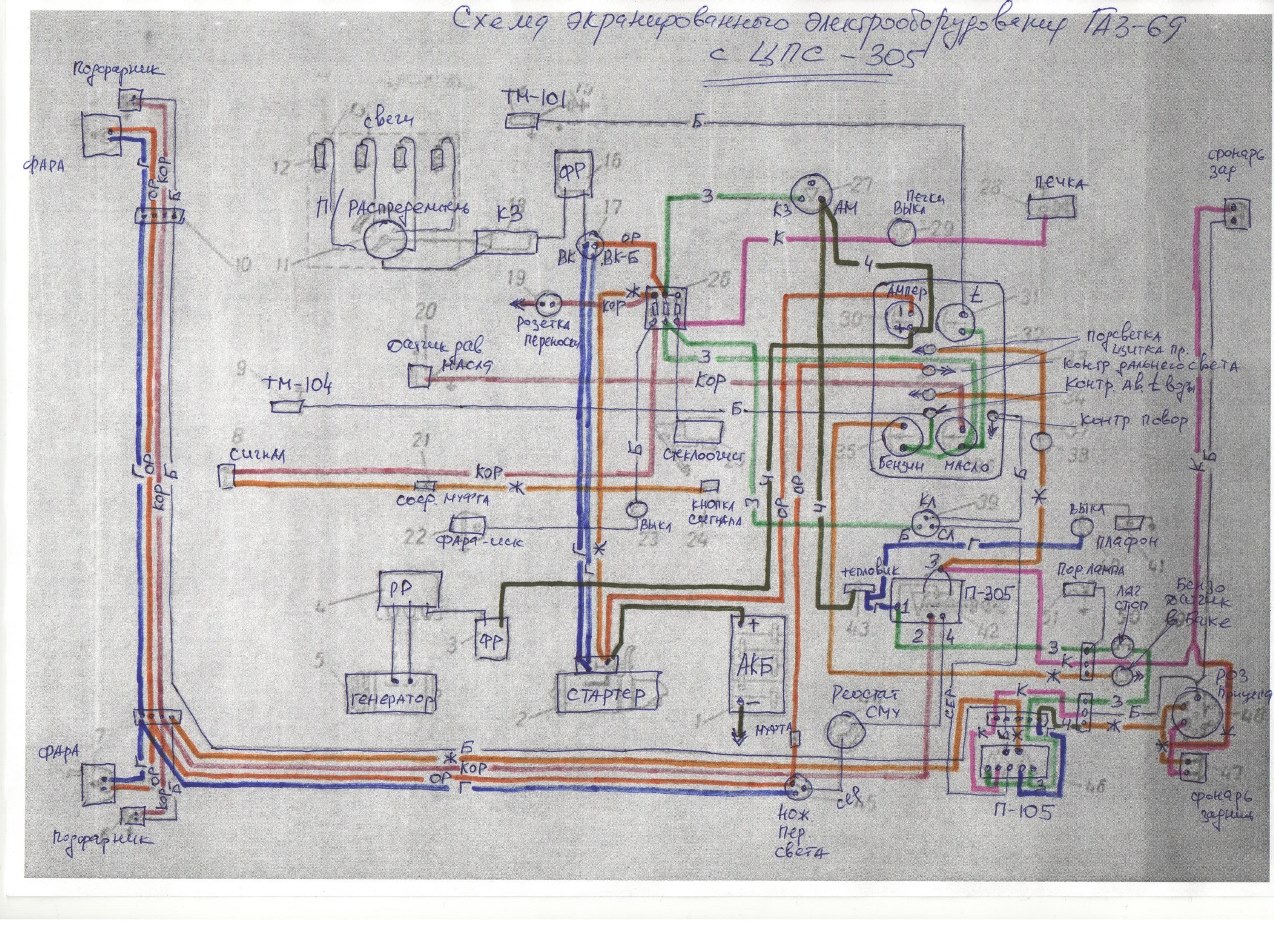 Схема экранированного электрооборудования ГАЗ-69
с ЦПС - 305
Подфарник
ФАРА
Г
ОР
КОР
Б
10
12
свечи
П/РАСПРЕДЕЛИТЕЛЬ
11
КЗ
ТМ-101
Б
ФР
16
17
ВК
ВК-Б
ОР
З
КЗ
АМ
27
Печка
выкл
29
28
ПЕЧКА
фонарь
зад
К
Ч
19
КОР
Ж
Розетка
Переноски
26
20
Датчик дав
МАСЛА
9
ТМ-104
АМПЕР
t
30
31
32
Подсветка
щитка пр.
Контр дальнего света
Контр Ав. t воды
Контр повор
З
КОР
Б
8
СИГНАЛ
21
КОР
Ж
соед. МУФТА
22
ФАРА-иск
Б
Выкл
23
24
КНОПКА
СИГНАЛА
Стеклоочист
35
Бензин
МАСЛО
38
КЛ
39
Б
СЛ
Г
Выкл
ПЛАФОН
41
Ч
ОР
ОР
Ч
З
Б
Ж
Г
ОР
КОР
Б
К
Б
Г
Г
Ж
4
РР
3
ФР
5
ГЕНЕРАТОР
2
СТАРТЕР
1
+
АКБ
-
МУФТА
тепловик
43
1
3
2
4
П-305
42
Пор лампа
ЛАГ
СТОП
Бензо
Датчик
в баке
З
К
Ж
Реостат
СМУ
СЕР
РОЗ
Прицепа
48
К
З
Б
Ч
Ж
К
К
Ж
З
46
П-105
Ж
К
47
фонарь
задний
7
ФАРА
Г
ОР
КОР
Б
Подфарник
Б
Ж
КОР
ОР
Г
45
НОЖ.
Пер.
света